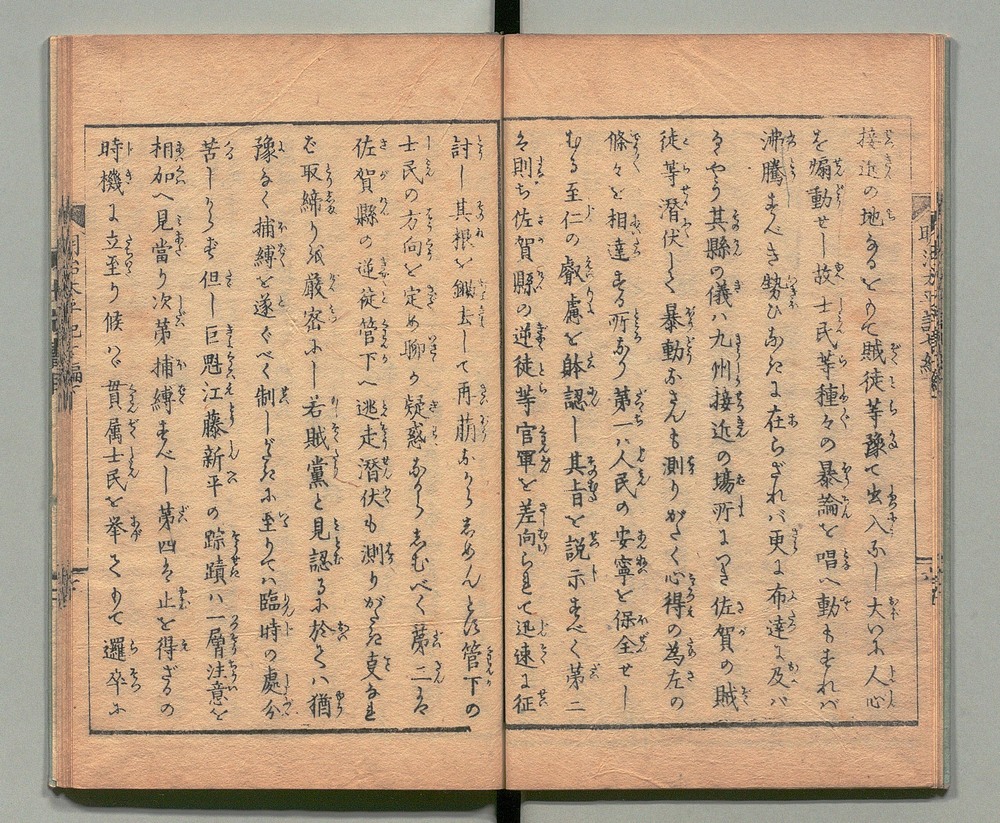 接近の地なるをもて賊徒等豫て出入なし大いに人心
を煽動せし故士民等種々の暴論を唱へ動もすれバ
沸騰すべき勢ひなきに在らざれバ更に布達に及バ
るやう其縣の儀ハ九州接近の場所につき佐賀の賊
徒等潜伏しく暴動なさんも測りがたく心得の為左の
條々を相達する所なり第一ハ人民の安寧を保全せし
むる至仁の叡慮を躰認し其旨を説示すべく第二
ハ則ち佐賀縣の逆徒等官軍を差向られて迅速に征
討し其根を鋤去して再萠なからしめんとす管下の
士民の方向を定め聊か疑惑なからしむべく第三ハ
佐賀縣の逆徒管下へ逃走潜伏も測りがたき叓なれ
ば取締り紙厳密にし若賊黨と見認るに於てハ猶
豫なく捕縛を遂ぐべく制しがたきに至りてハ臨時の處分
苦しからず但し巨魁江藤新平の踪蹟ハ一層注意を
相加へ見當り次第捕縛すべし第四ハ止を得ざるの
時機に立至り候ハヾ貫属士民を挙てもて邏卒に